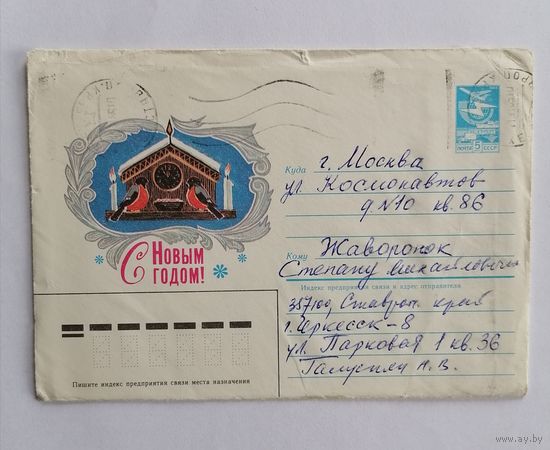 Куда г. Москва
ул Космонавтов
д №10 кв. 86
Кому Жаворонок
Степану Михайловичу
Индекс предприятия связи и адрес отправителя
357100, Ставроп. край
г. Черкесск-8
ул. Парковая 1 кв. 36
А. В.
С Новым
годом!
Пишите индекс предприятия связи места назначения
ПОЧТА 5 СССР
www.ay.by